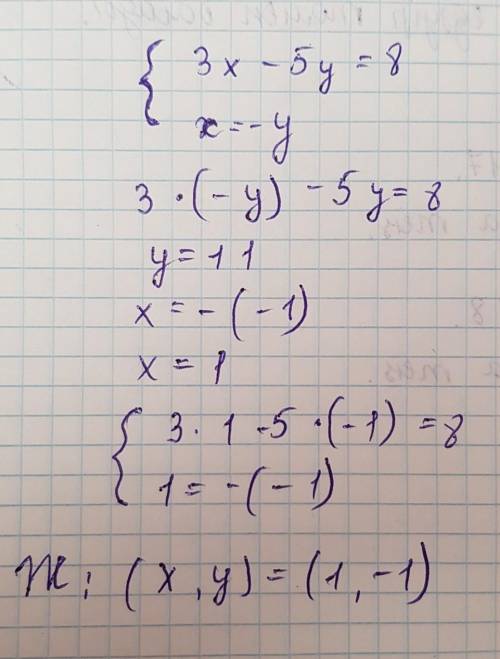 3x - 5y = 8
x = -y
3 · (-y) - 5y = 8
y = 11
x = - (-1)
x = 1
3 · 1 - 5 · (-1) = 8
1 = - (-1)
Ж: (x, y) = (1, -1)